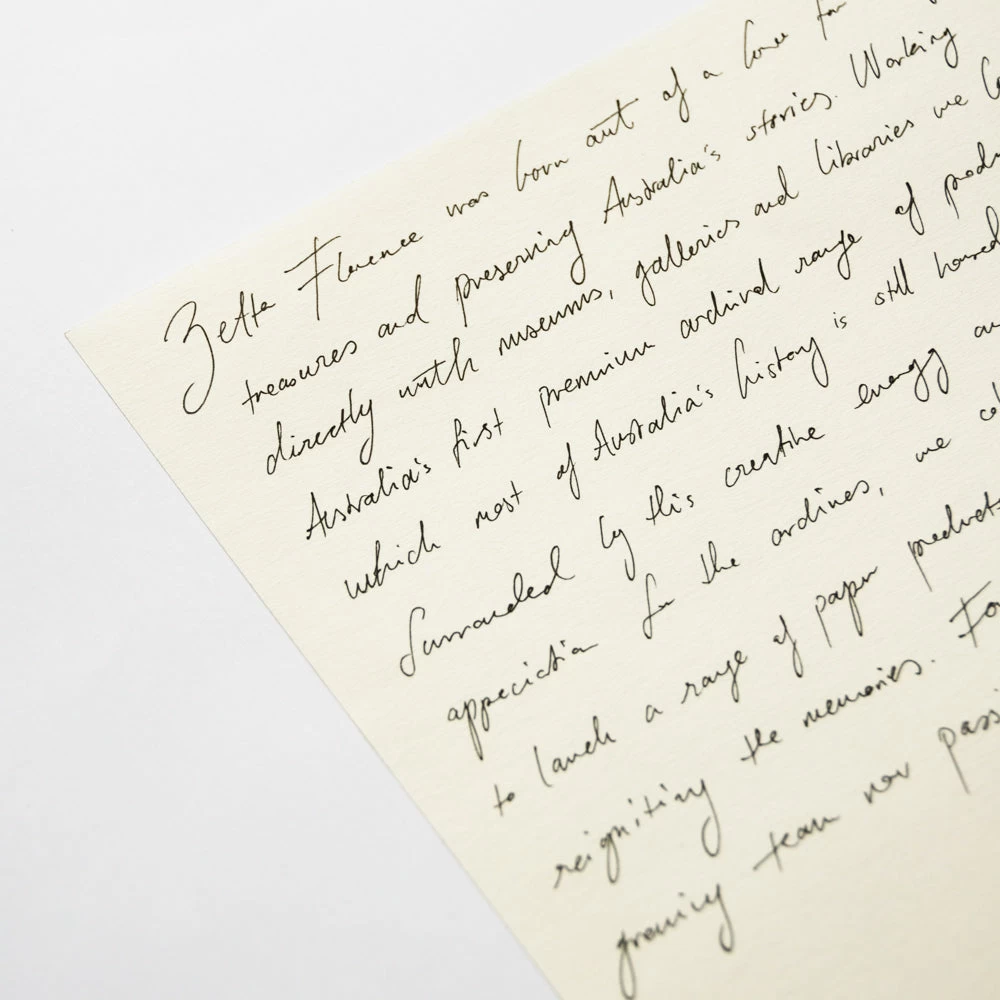 Zetta Florence was born out of a love for
treasures and preserving Australia's stories. Working
directly with museums, galleries and libraries we
Australia's first premium archival range of
which most of Australia's history is still housed
Surrounded by this creative energy
appreciation for the archives, we
to launch a range of paper products
reigniting the memories.
growing team now